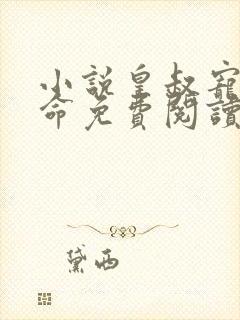 小說皇叔寵
命免費閱讀
黛西